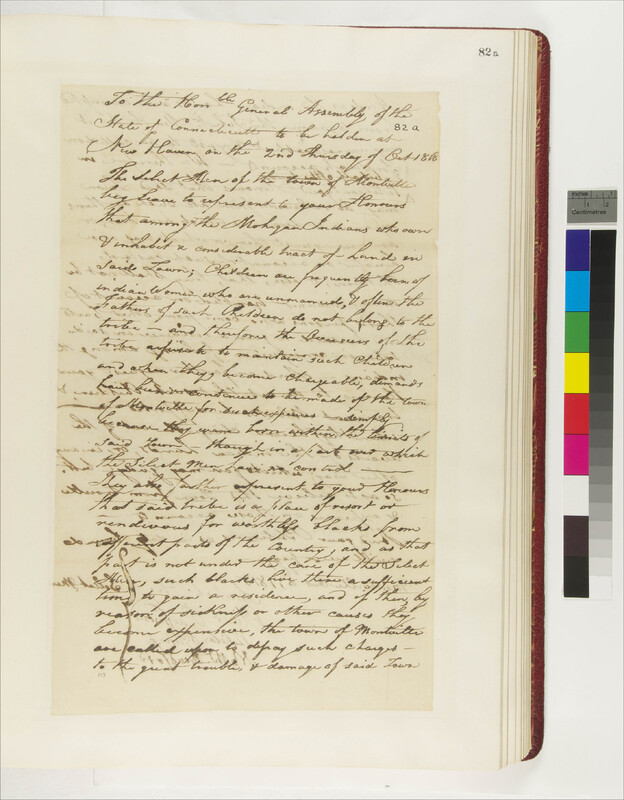 82a
To the Honble General Assembly of the
82a
State of Connecticutt to be holden at
New Haven on the 2nd Thursday of Oct 1818
The Select Men of the town of Montville
beg leave to represent to your Honours
that among the Mohegan Indians who own
& inhabit a considerable tract of Land in
said Town; Children are frequently born of
indian Women who are unmarried, & often the
Fathers of such Children do not belong to the
tribe – and therefore the Overseers of the
tribe refuse to maintain such Children
and when they become chargeable, demands
have been & continues to be made of the town
of Montville for such expenses – simply
because they were born within the limits of
said Town – though in a part over which
the Select Men have no control
They also further represent to your Honours
that said tribe is a place of resort or
rendivous for worthless blacks from
different parts of the Country, and as that
part is not under the care of the Select
Men, such blacks live there a sufficient
time to gain a residence, and if then, by
reason of sickness or other causes they
become expensive, the town of Montville
are called upon to defray such charges –
to the great trouble & damage of said Town